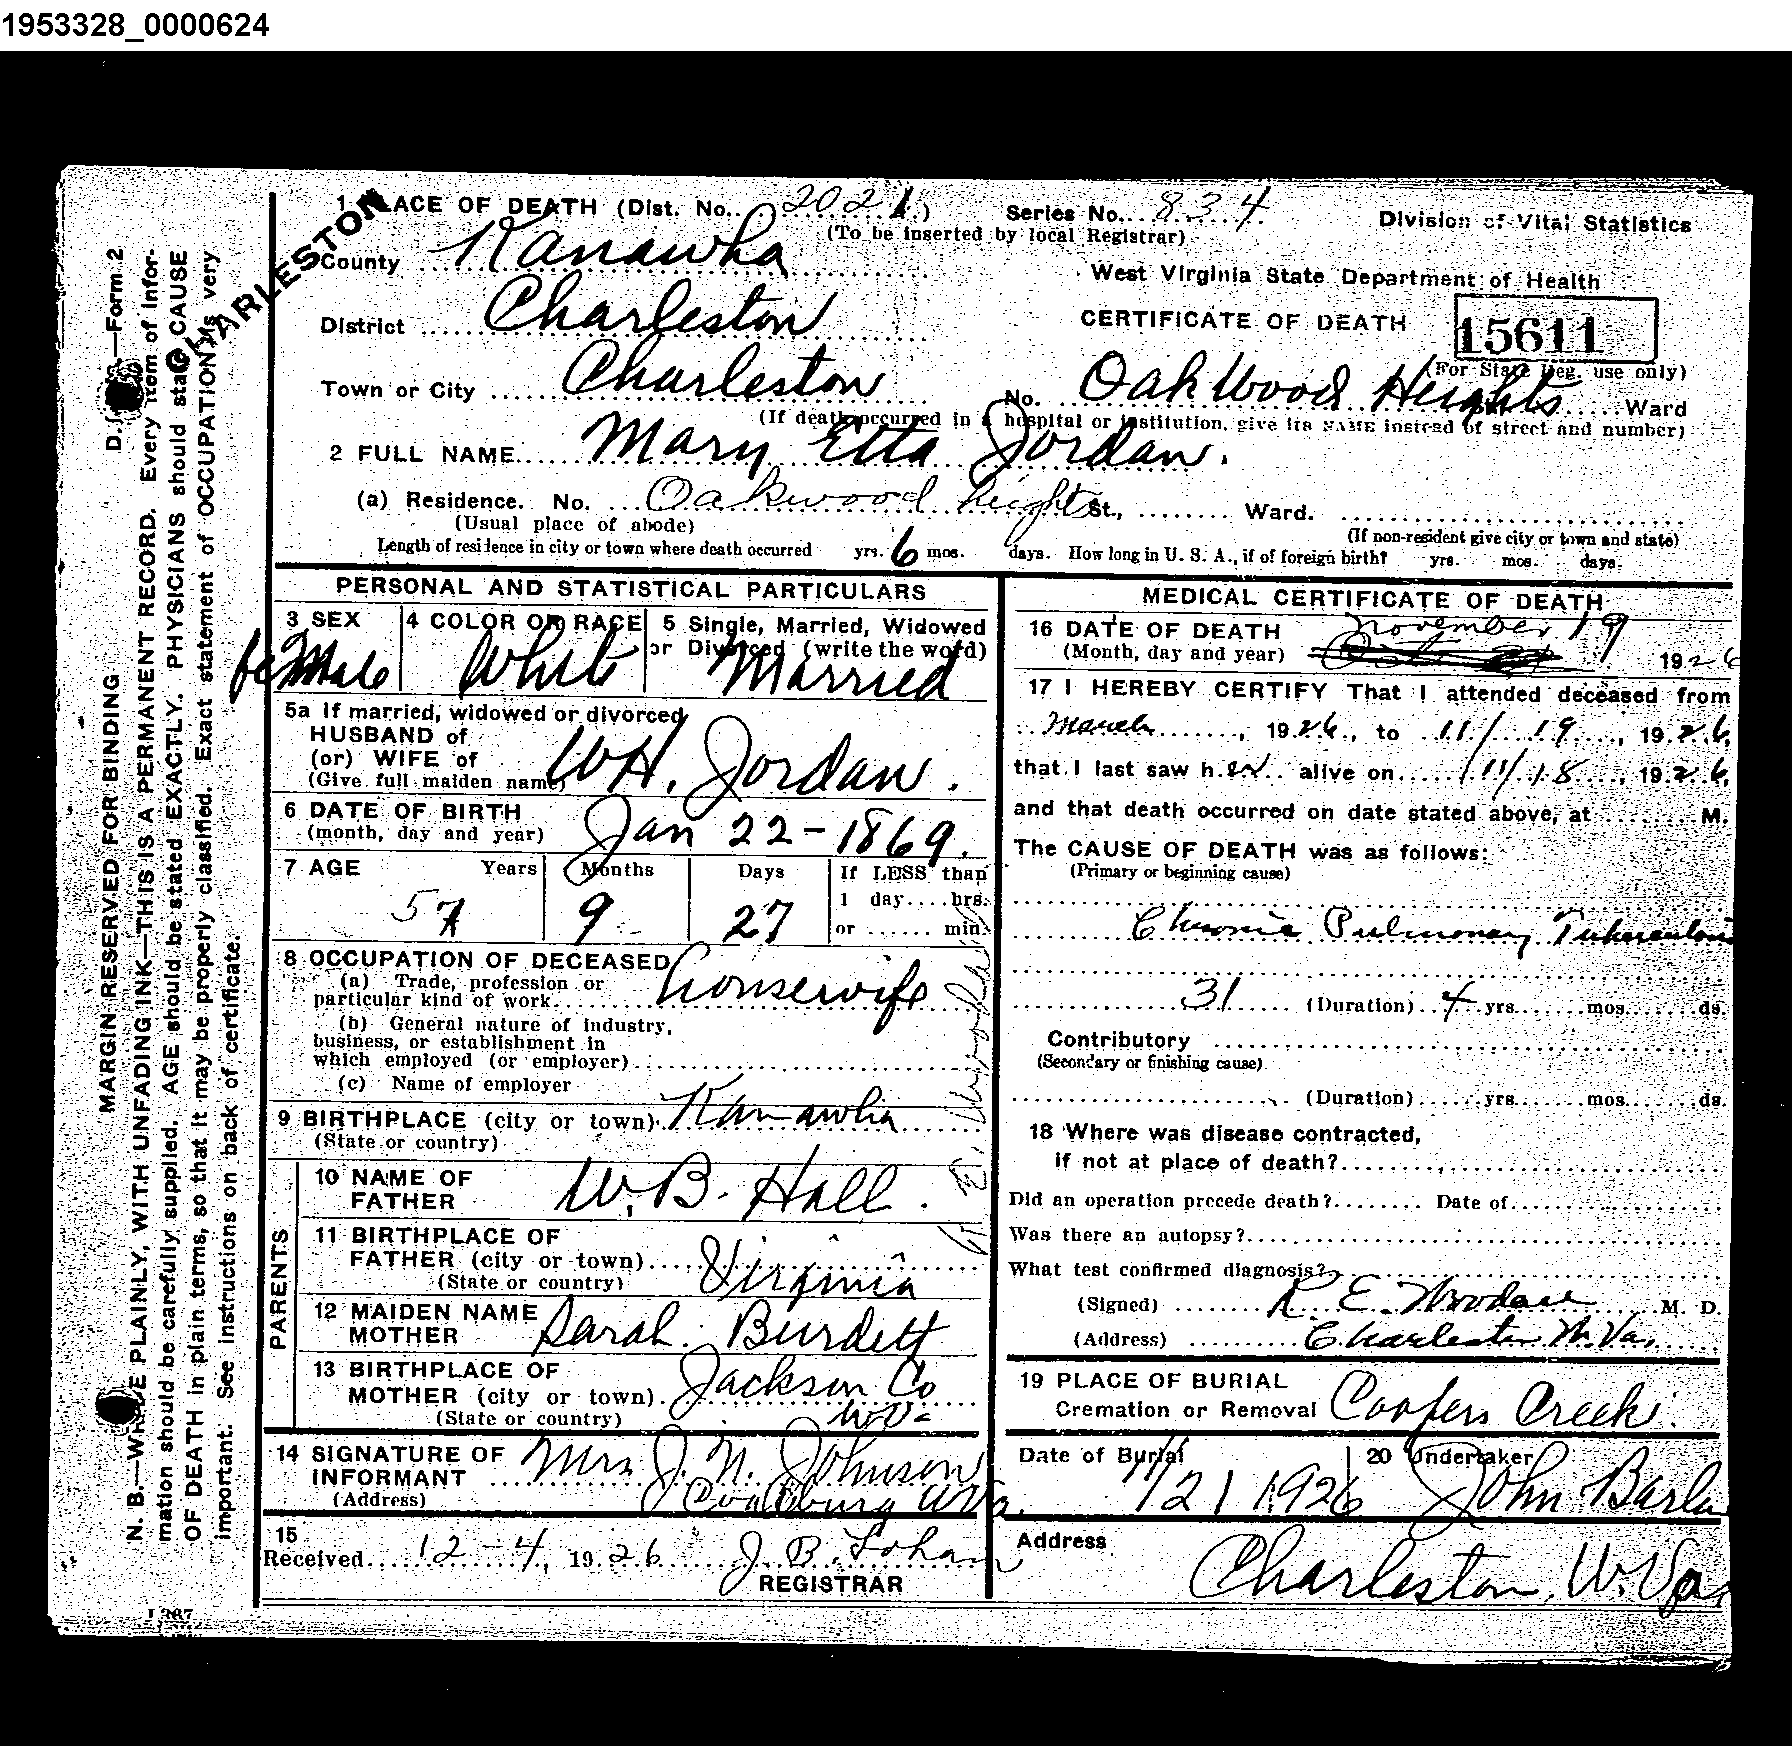 1953328_0000624
1 PLACE OF DEATH (Dist. No. 2021)
Series No. 834
Division of Vital Statistics
(To be inserted by local Registrar)
CHARLESTON
County Kanawha
West Virginia State Department of Health
District Charleston
CERTIFICATE OF DEATH
15611
(For State Reg. use only)
Town or City Charleston
No. Oakwood Heights St. Ward
(If death occurred in a hospital or institution, give its NAME instead of street and number)
2 FULL NAME Mary Etta Jordan.
(a) Residence. No. Oakwood heights St., Ward.
(Usual place of abode)
(If non-resident give city or town and state)
Length of residence in city or town where death occurred yrs. 6 mos. days. How long in U. S. A., if of foreign birth? yrs. mos. days.
PERSONAL AND STATISTICAL PARTICULARS
3 SEX
feMale
4 COLOR OR RACE
White
5 Single, Married, Widowed
or Divorced (write the word)
Married
5a If married, widowed or divorced
HUSBAND of
(or) WIFE of
(Give full maiden name)
W.H. Jordan.
6 DATE OF BIRTH
(month, day and year)
Jan 22 - 1869.
7 AGE Years Months Days
57 9 27
If LESS than
1 day....hrs.
or ...... min.
8 OCCUPATION OF DECEASED
(a) Trade, profession or
particular kind of work housewife
(b) General nature of industry,
business, or establishment in
which employed (or employer)
(c) Name of employer
9 BIRTHPLACE (city or town) Kanawha
(State or country)
PARENTS
10 NAME OF
FATHER
W. B. Hall.
11 BIRTHPLACE OF
FATHER (city or town)
(State or country)
Virginia
12 MAIDEN NAME
MOTHER
Sarah Burdett
13 BIRTHPLACE OF
MOTHER (city or town) Jackson Co
(State or country) W Va
14 SIGNATURE OF
INFORMANT Mrs J. N. Johnson
(Address) Coalburg W Va.
15
Received 12-4, 1926 J. B. Lohan
REGISTRAR
MEDICAL CERTIFICATE OF DEATH
16 DATE OF DEATH
(Month, day and year)
November 19 1926
17 I HEREBY CERTIFY That I attended deceased from
March, 1926, to 11/19, 1926,
that I last saw her alive on 11/18, 1926,
and that death occurred on date stated above, at M.
The CAUSE OF DEATH was as follows:
(Primary or beginning cause)
Chronic Pulmonary Tuberculosis
31 (Duration) 4 yrs. mos. ds.
Contributory
(Secondary or finishing cause)
(Duration) yrs. mos. ds.
18 Where was disease contracted,
if not at place of death?
Did an operation precede death? Date of
Was there an autopsy?
What test confirmed diagnosis?
(Signed) R. E. Woodall M. D.
(Address) Charleston W. Va.
19 PLACE OF BURIAL
Cremation or Removal
Coopers Creek.
Date of Burial
11/21 1926
20 Undertaker
John Barla
Address
Charleston, W. Va.
D. —Form 2
MARGIN RESERVED FOR BINDING
N. B.—WRITE PLAINLY, WITH UNFADING INK—THIS IS A PERMANENT RECORD. Every item of infor-
mation should be carefully supplied. AGE should be stated EXACTLY. PHYSICIANS should state CAUSE
OF DEATH in plain terms, so that it may be properly classified. Exact statement of OCCUPATION is very
important. See instructions on back of certificate.